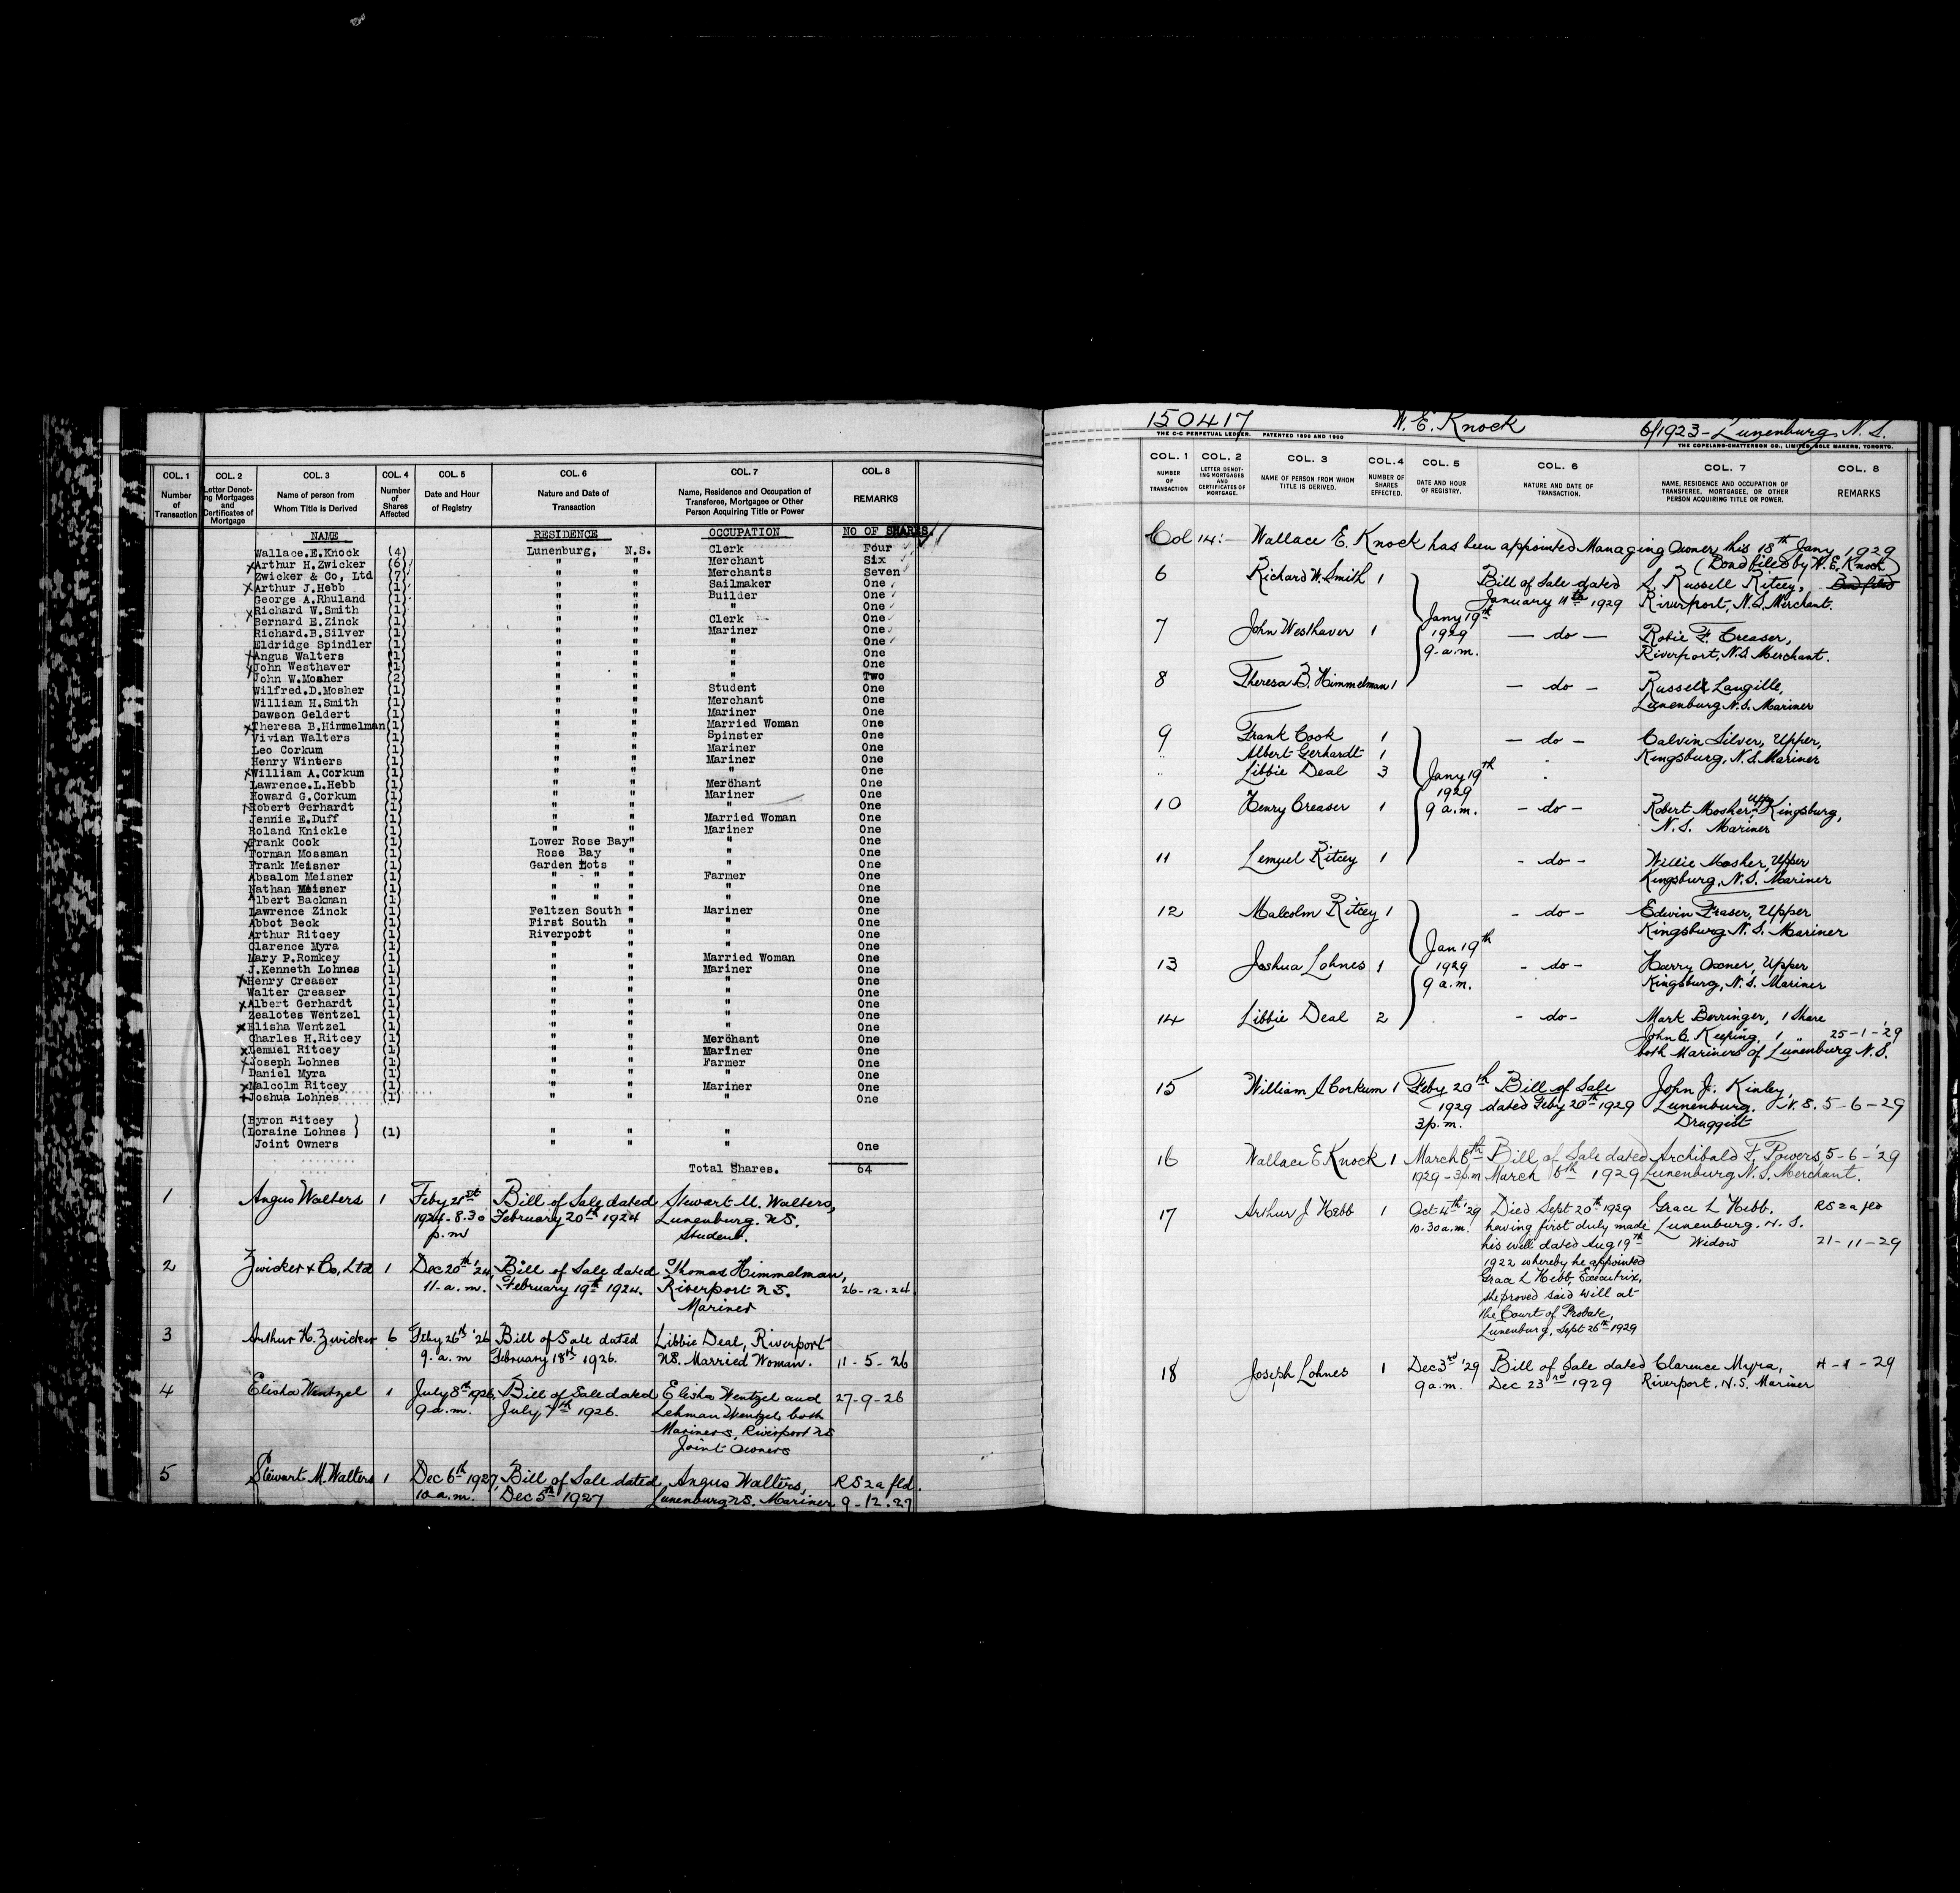 COL. 1 COL. 2 COL. 3 COL. 4 COL. 5 COL. 6 COL. 7 COL. 8
Number of Transaction
Letter Denoting Mortgages and Certificates of Mortgage
Name of person from Whom Title is Derived
Number of Shares Affected
Date and Hour of Registry
Nature and Date of Transaction
Name, Residence and Occupation of Transferee, Mortgagee or Other Person Acquiring Title or Power
REMARKS
NAME RESIDENCE OCCUPATION NO OF SHARES.
Wallace.E.Knock (4) Lunenburg, N.S. Clerk Four
Arthur H.Zwicker (6) " " Merchant Six
Zwicker & Co, Ltd (7) " " Merchants Seven
Arthur J.Hebb (1) " " Sailmaker One
George A.Rhuland (1) " " Builder One
Richard W.Smith (1) " " " One
Bernard E.Zinck (1) " " Clerk One
Richard.B.Silver (1) " " Mariner One
Eldridge Spindler (1) " " " One
Angus Walters (1) " " " One
John Westhaver (1) " " " One
John W.Mosher (2) " " " Two
Wilfred.D.Mosher (1) " " Student One
William H.Smith (1) " " Merchant One
Dawson Geldert (1) " " Mariner One
Theresa B.Himmelman (1) " " Married Woman One
Vivian Walters (1) " " Spinster One
Leo Corkum (1) " " Mariner One
Henry Winters (1) " " Mariner One
William A.Corkum (1) " " " One
Lawrence.L.Hebb (1) " " Merchant One
Howard G.Corkum (1) " " Mariner One
Robert Gerhardt (1) " " " One
Jennie E.Duff (1) " " Married Woman One
Roland Knickle (1) " " Mariner One
Frank Cook (1) Lower Rose Bay " " One
Torman Mossman (1) Rose Bay " " One
Frank Meisner (1) Garden Lots " " One
Absalom Meisner (1) " " " Farmer One
Nathan Meisner (1) " " " " One
Albert Backman (1) " " " " One
Lawrence Zinck (1) Feltzen South " Mariner One
Abbot Beck (1) First South " " One
Arthur Ritcey (1) Riverport " " One
Clarence Myra (1) " " " One
Mary P.Romkey (1) " " Married Woman One
J.Kenneth Lohnes (1) " " Mariner One
Henry Creaser (1) " " " One
Walter Creaser (1) " " " One
Albert Gerhardt (1) " " " One
Zealotes Wentzel (1) " " " One
Elisha Wentzel (1) " " " One
Charles H.Ritcey (1) " " Merchant One
Lemuel Ritcey (1) " " Mariner One
Joseph Lohnes (1) " " Farmer One
Daniel Myra (1) " " " One
Malcolm Ritcey (1) " " Mariner One
Joshua Lohnes (1) " " " One
(Byron Ritcey )
(Loraine Lohnes ) (1) " " "
Joint Owners One
Total Shares. 64
1 Angus Walters 1 Feby 21st Bill of Sale dated Stewart M. Walters,
1924-8.30 February 20th 1924 Lunenburg. N.S.
p.m Student.
2 Zwicker & Co, Ltd 1 Dec 20th '24, Bill of Sale dated Thomas Himmelman,
11-a.m. February 19th 1924. Riverport N.S. 26-12.24
Mariner
3 Arthur H. Zwicker 6 Feby 26th '26 Bill of Sale dated Libbie Deal, Riverport
9.a.m February 18th 1926. N.S. Married Woman. 11-5-26
4 Elisha Wentzel 1 July 8th 1926, Bill of Sale dated Elisha Wentzel and 27-9-26
9 a.m. July 7th 1926. Lehman Wentzel, both
Mariners, Riverport NS
Joint Owners
5 Stewart M. Walters 1 Dec 6th 1927, Bill of Sale dated Angus Walters, RS 2a fld.
10 a.m. Dec 5th 1927 Lunenburg NS. Mariner 9-12.27
150417 W. E. Knock 6/1923 - Lunenburg, N.S.
THE C-C PERPETUAL LEDGER. PATENTED 1896 AND 1900 THE COPELAND-CHATTERSON CO., LIMITED, SOLE MAKERS, TORONTO.
COL. 1 COL. 2 COL. 3 COL.4 COL. 5 COL. 6 COL. 7 COL. 8
NUMBER OF TRANSACTION
LETTER DENOTING MORTGAGES AND CERTIFICATES OF MORTGAGE.
NAME OF PERSON FROM WHOM TITLE IS DERIVED.
NUMBER OF SHARES EFFECTED.
DATE AND HOUR OF REGISTRY.
NATURE AND DATE OF TRANSACTION.
NAME, RESIDENCE AND OCCUPATION OF TRANSFEREE, MORTGAGEE, OR OTHER PERSON ACQUIRING TITLE OR POWER.
REMARKS
Col 14:- Wallace E. Knock has been appointed Managing Owner this 18th Jany 1929
(Bond filed by W. E. Knock)
6 Richard W. Smith 1 Bill of Sale dated S. Russell Ritcey, Bond filed
January 11th 1929 Riverport, N.S. Merchant.
Jany 19th
7 John Westhaver 1 1929 - do - Robie F. Creaser,
9-a.m. Riverport, N.S. Merchant.
8 Theresa B. Himmelman 1 - do - Russell Langille,
Lunenburg N.S. Mariner
9 Frank Cook 1 - do - Calvin Silver, Upper,
" Albert Gerhardt 1 Kingsburg, N.S. Mariner
" Libbie Deal 3 Jany 19th
1929
10 Henry Creaser 1 9 a.m. - do - Robert Mosher, Upp Kingsburg,
N.S. Mariner
11 Lemuel Ritcey 1 - do - Willie Mosher, Upper
Kingsburg, N.S. Mariner
12 Malcolm Ritcey 1 - do - Edwin Fraser, Upper
Kingsburg N.S. Mariner
Jan 19th
13 Joshua Lohnes 1 1929 - do - Harry Oxner, Upper
9 a.m. Kingsburg, N.S. Mariner
14 Libbie Deal 2 - do - Mark Berringer, 1 Share
John C. Keeping, 1 " 25-1-'29
both Mariners of Lunenburg N.S.
15 William A Corkum 1 Feby 20th Bill of Sale John J. Kinley,
1929 dated Feby 20th 1929 Lunenburg, N.S. 5-6-29
3 p.m. Druggist
16 Wallace E Knock 1 March 6th Bill of Sale dated Archibald F. Powers, 5-6-'29
1929-3 p.m March 6th 1929 Lunenburg N.S. Merchant.
17 Arthur J Hebb 1 Oct 4th '29 Died Sept 20th 1929 Grace L Hebb. RS 2a fld
10.30 a.m. having first duly made Lunenburg. N.S.
his will dated Aug 19th Widow 21-11-29
1922 whereby he appointed
Grace L Hebb, Executrix,
she proved said will at
the Court of Probate,
Lunenburg, Sept 26th 1929
18 Joseph Lohnes 1 Dec 3rd '29 Bill of Sale dated Clarence Myra,
9 a.m. Dec 23rd 1929 Riverport, N.S. Mariner